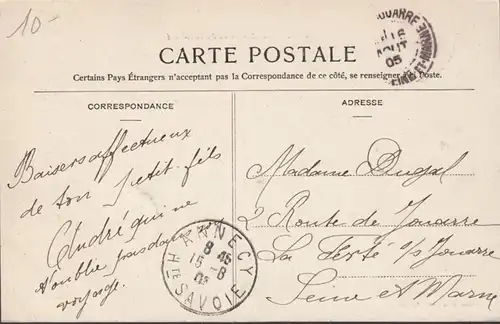 10-
CARTE POSTALE
Certains Pays Étrangers n'acceptant pas la Correspondance de ce côté, se renseigner Poste.
CORRESPONDANCE
ADRESSE
Baisers affectueux
de ton petit-fils
André qui ne
t'oublie pas dans
voyage.
Madame Dugal
2 Route de Jouarre
La Ferté s/s Jouarre
Seine et Marne
ANNECY
8 45
15 -8
05
HTE SAVOIE
JOUARRE
16
AOUT
05
SEINE-ET-MARNE